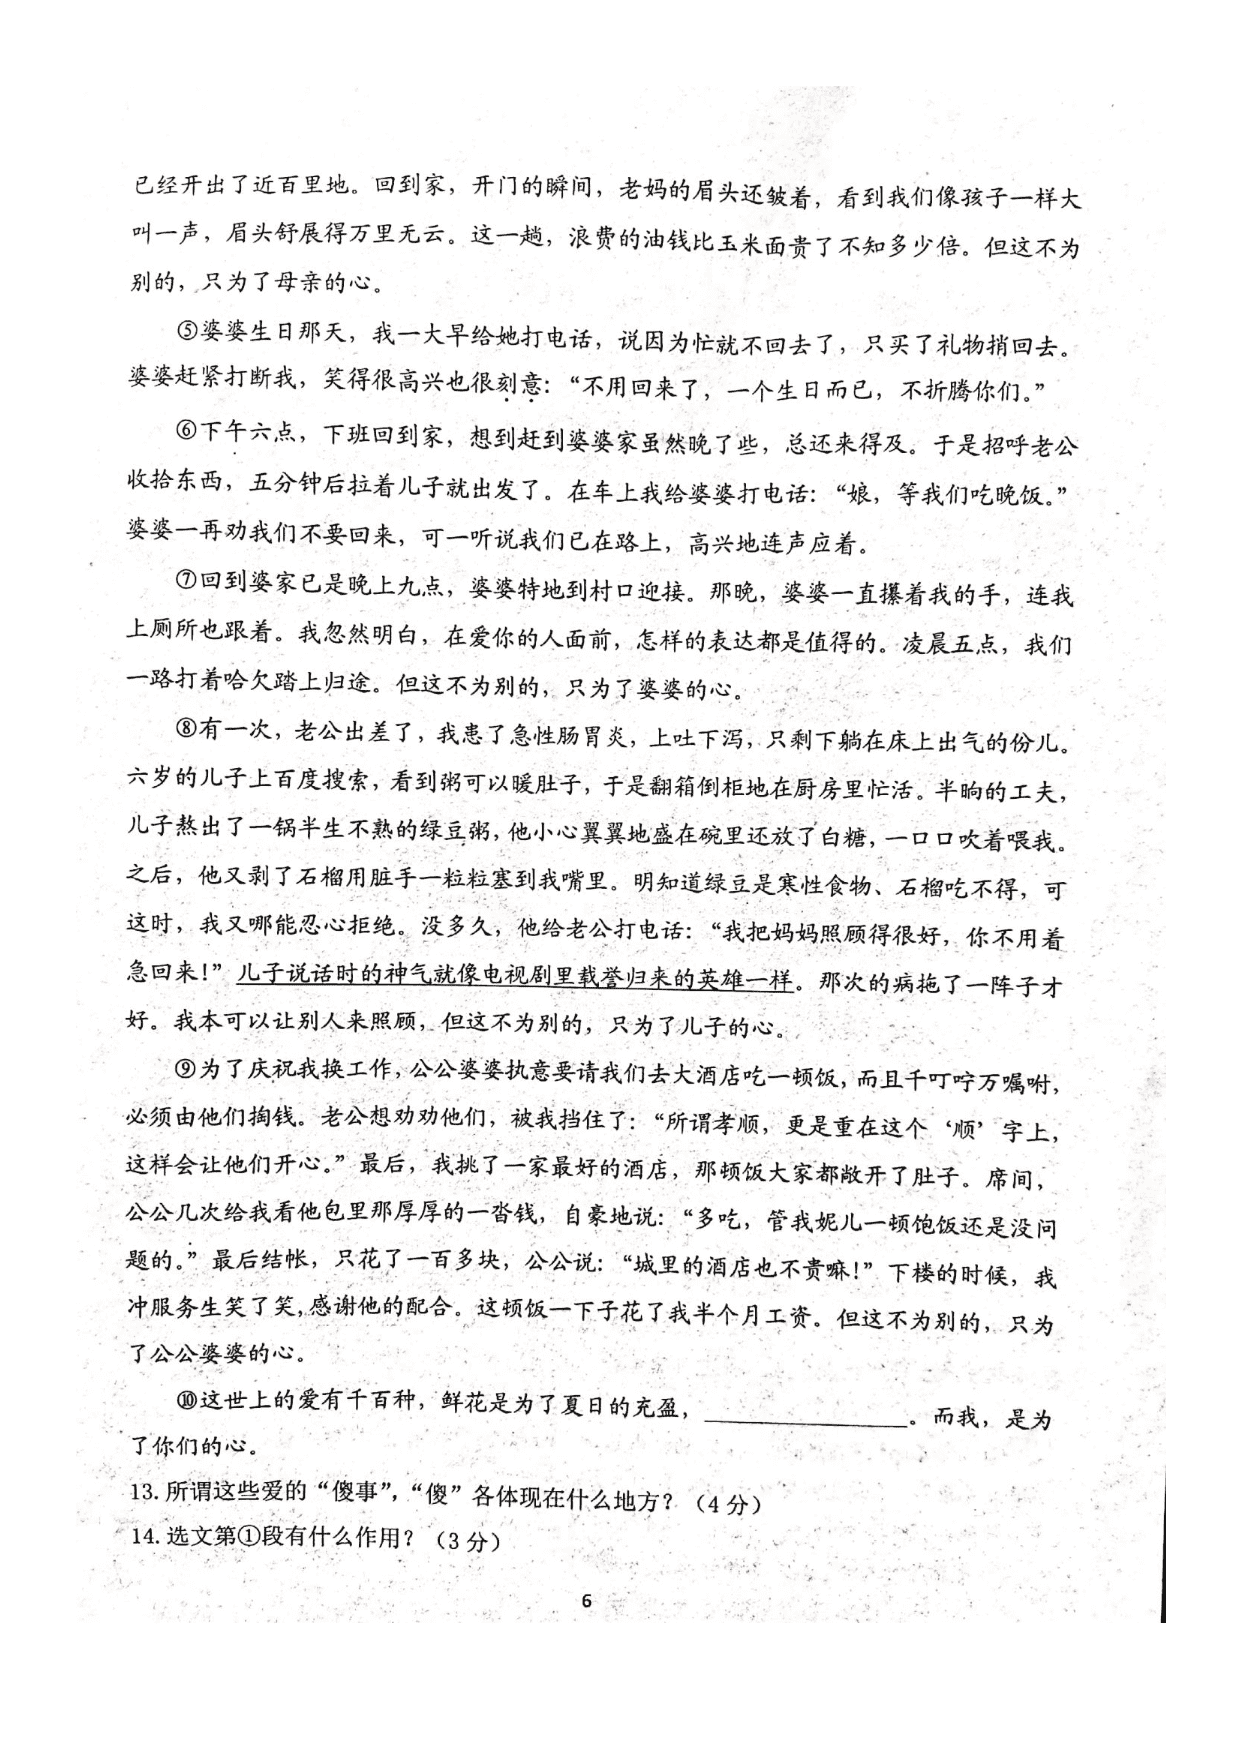 已经开出了近百里地。回到家，开门的瞬间，老妈的眉头还皱着，看到我们像孩子一样大
叫一声，眉头舒展得万里无云。这一趟，浪费的油钱比玉米面贵了不知多少倍。但这不为
别的，只为了母亲的心。
⑤婆婆生日那天，我一大早给她打电话，说因为忙就不回去了，只买了礼物捎回去。
婆婆赶紧打断我，笑得很高兴也很刻意：“不用回来了，一个生日而已，不折腾你们。”
⑥下午六点，下班回到家，想到赶到婆婆家虽然晚了些，总还来得及。于是招呼老公
收拾东西，五分钟后拉着儿子就出发了。在车上我给婆婆打电话：“娘，等我们吃晚饭。”
婆婆一再劝我们不要回来，可一听说我们已在路上，高兴地连声应着。
⑦回到婆家已是晚上九点，婆婆特地到村口迎接。那晚，婆婆一直攥着我的手，连我
上厕所也跟着。我忽然明白，在爱你的人面前，怎样的表达都是值得的。凌晨五点，我们
一路打着哈欠踏上归途。但这不为别的，只为了婆婆的心。
⑧有一次，老公出差了，我患了急性肠胃炎，上吐下泻，只剩下躺在床上出气的份儿。
六岁的儿子上百度搜索，看到粥可以暖肚子，于是翻箱倒柜地在厨房里忙活。半晌的工夫，
儿子熬出了一锅半生不熟的绿豆粥，他小心翼翼地盛在碗里还放了白糖，一口口吹着喂我。
之后，他又剥了石榴用脏手一粒粒塞到我嘴里。明知道绿豆是寒性食物、石榴吃不得，可
这时，我又哪能忍心拒绝。没多久，他给老公打电话：“我把妈妈照顾得很好，你不用着
急回来！”儿子说话时的神气就像电视剧里载誉归来的英雄一样。那次的病拖了一阵子才
好。我本可以让别人来照顾，但这不为别的，只为了儿子的心。
⑨为了庆祝我换工作，公公婆婆执意要请我们去大酒店吃一顿饭，而且千叮咛万嘱咐，
必须由他们掏钱。老公想劝劝他们，被我挡住了：“所谓孝顺，更是重在这个‘顺’字上，
这样会让他们开心。”最后，我挑了一家最好的酒店，那顿饭大家都敞开了肚子。席间，
公公几次给我看他包里那厚厚的一沓钱，自豪地说：“多吃，管我妮儿一顿饱饭还是没问
题的。”最后结帐，只花了一百多块，公公说：“城里的酒店也不贵嘛！”下楼的时候，我
冲服务生笑了笑，感谢他的配合。这顿饭一下子花了我半个月工资。但这不为别的，只为
了公公婆婆的心。
⑩这世上的爱有千百种，鲜花是为了夏日的充盈，________________。而我，是为
了你们的心。
13.所谓这些爱的“傻事”，“傻”各体现在什么地方？（4分）
14.选文第①段有什么作用？（3分）
6